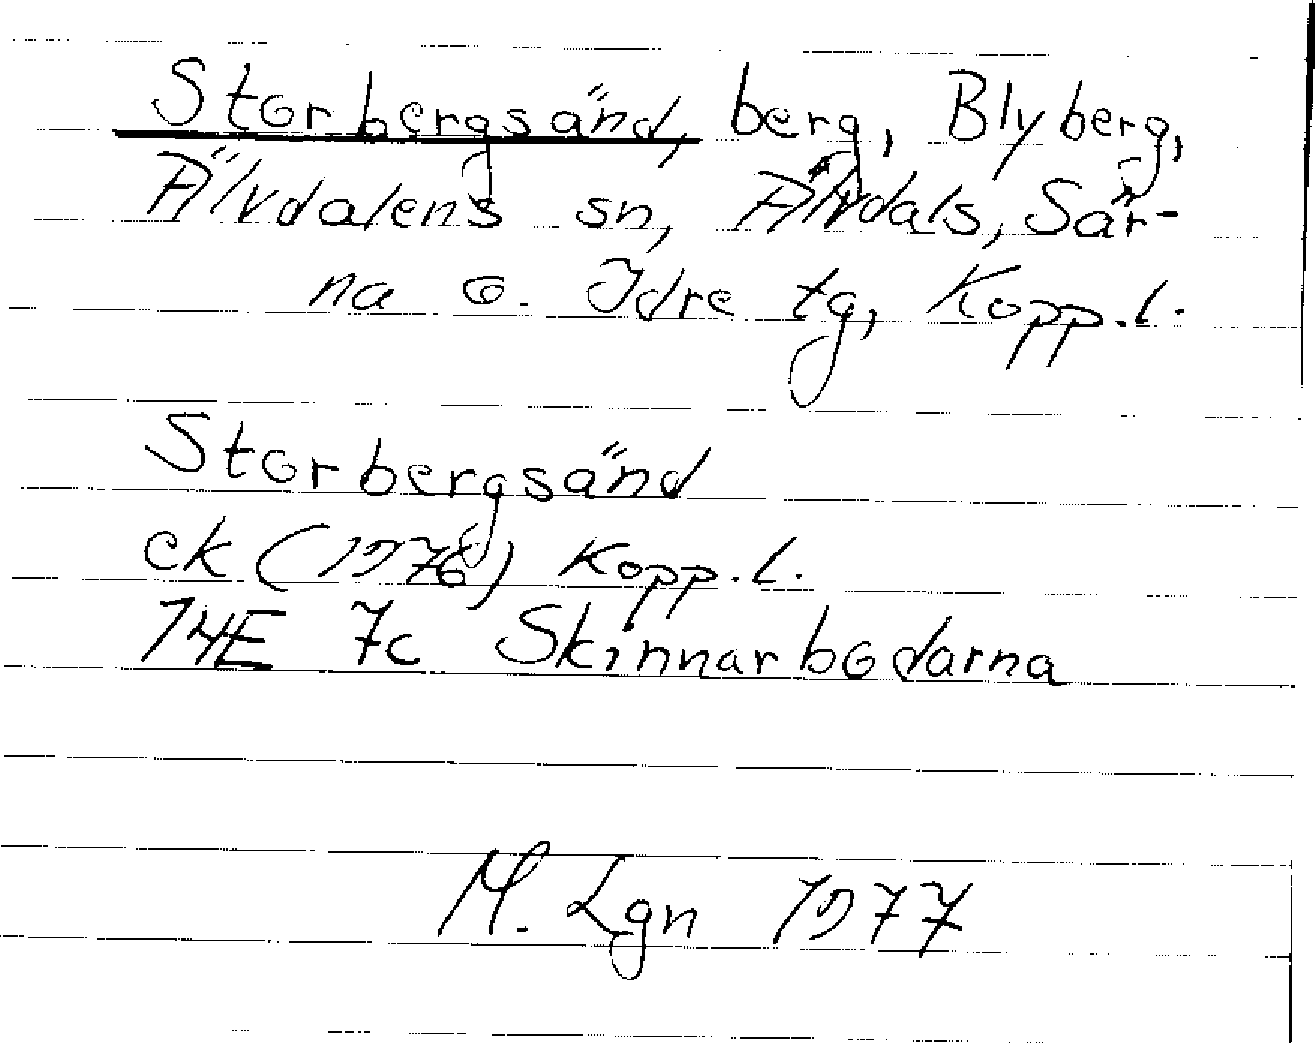 Storbergsänd, berg, Blyberg,
Älvdalens sn, Älvdals, Sär-
na o. Idre tg, Kopp.l.
Storbergsänd
ek (1976) Kopp.l.
14E 7c Skinnarbodarna
M. Lgn 1977